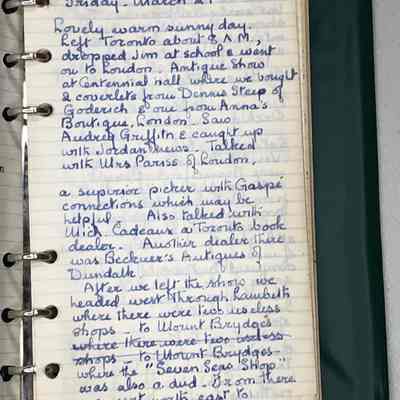 Friday. March 21
Lovely warm sunny day.
Left Toronto about 8 A.M.,
dropped Jim at school & went
on to London. Antique Show
at Centennial Hall where we bought
2 coverlets from Dennis Steep of
Goderich & one from Anna's
Boutique, London. Saw
Audrey Griffith & caught up
with Jordan news. Talked
with Mrs Pariss of London,
a superior picker with Gaspé
connections which may be
helpful. Also talked with
Mich. Cadeaux a Toronto book
dealer. Another dealer there
was Beckner's Antiques of
Dundalk.
After we left the show we
headed west through Lambeth
where there were two useless
shops - to Mount Brydges
where there were two useless
shops - to Mount Brydges -
where the "Seven Seas Shop"
was also a dud. From there
went north east to